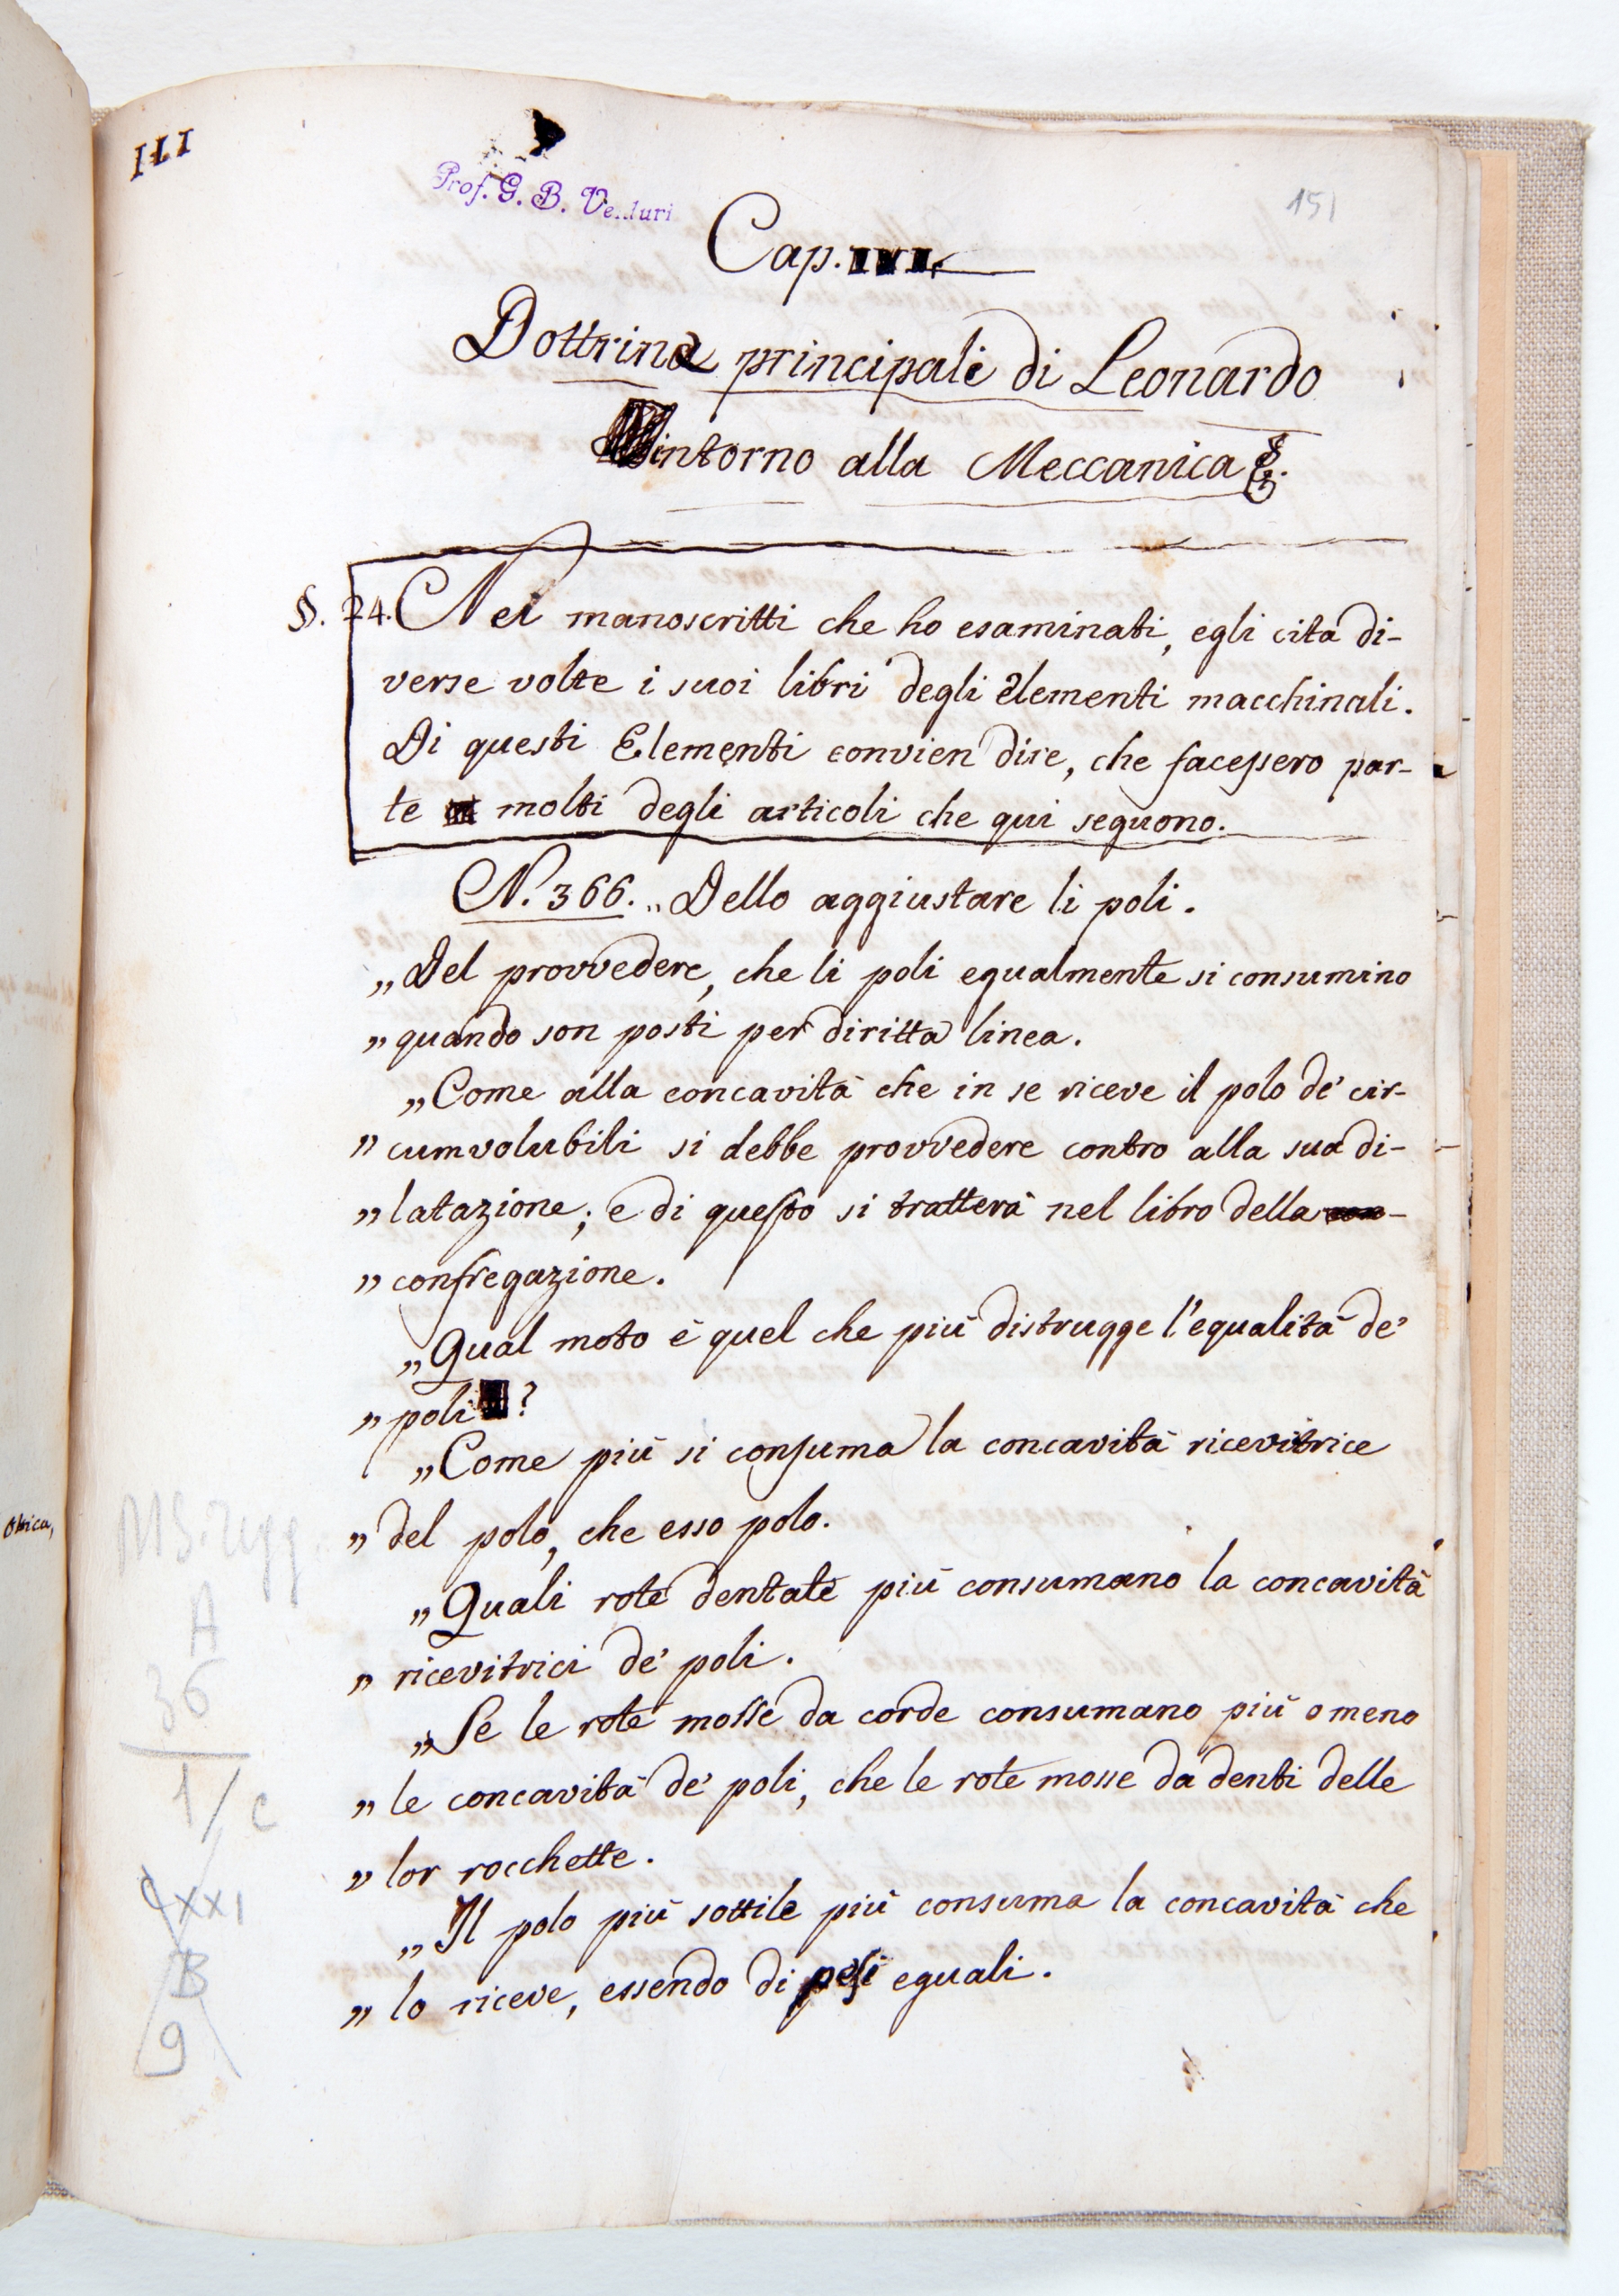 III
Prof. G. B. Venturi
151
Cap.
Dottrine principali di Leonardo
intorno alla Meccanica
§. 24. Nei manoscritti che ho esaminati, egli cita di-
verse volte i suoi libri degli elementi macchinali.
Di questi Elementi convien dire, che facessero par-
te molti degli articoli che qui seguono.
N. 366. „ Dello aggiustare li poli.
„ Del provvedere, che li poli egualmente si consumino
„ quando son posti per diritta linea.
„ Come alla concavità che in se riceve il polo de' cir-
„ cumvolubili si debbe provvedere contro alla sua di-
„ latazione; e di questo si tratterà nel libro della
„ confregazione.
„ Qual moto è quel che più distrugge l'equalità de'
„ poli ?
„ Come più si consuma la concavità ricevitrice
„ del polo, che esso polo.
„ Quali rote dentate più consumano la concavità
„ ricevitrici de' poli.
„ Se le rote mosse da corde consumano più o meno
„ le concavità de' poli, che le rote mosse da denti delle
„ lor rocchette.
„ Il polo più sottile più consuma la concavità che
„ lo riceve, essendo di pesi eguali.
Ottica,
MS. regg.
A
36
1/c
B
9